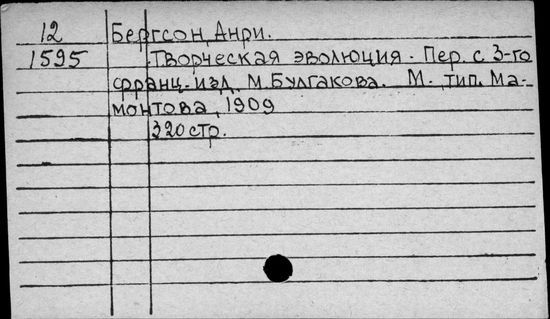 12 Бергсон, Анри.
1595 Творческая эволюция. Пер. с 3-го
франц. изд. М. Булгакова. М. тип. Ма-
монтова, 1909
320 стр.